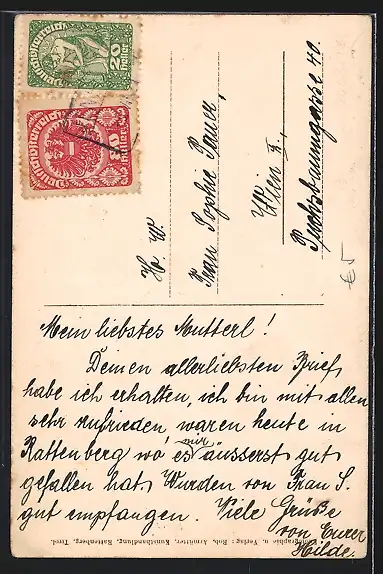 Deutschösterreich
20
Heller
Deutschösterreich
Heller
H. W.
Frau Sophie Bauer,
Wien X.,
Puchsbaumgasse 40.
€5
Mein liebstes Mutterl!
Deinen allerliebsten Brief
habe ich erhalten, ich bin mit allen
sehr zufrieden, waren heute in
Rattenberg wo es mir äusserst gut
gefallen hat. Wurden von Frau S.
gut empfangen. Viele Grüße
von Eurer
Hilde.
u. Verlag: Rob. Armütter, Kunsthandlung, Rattenberg, Tirol.